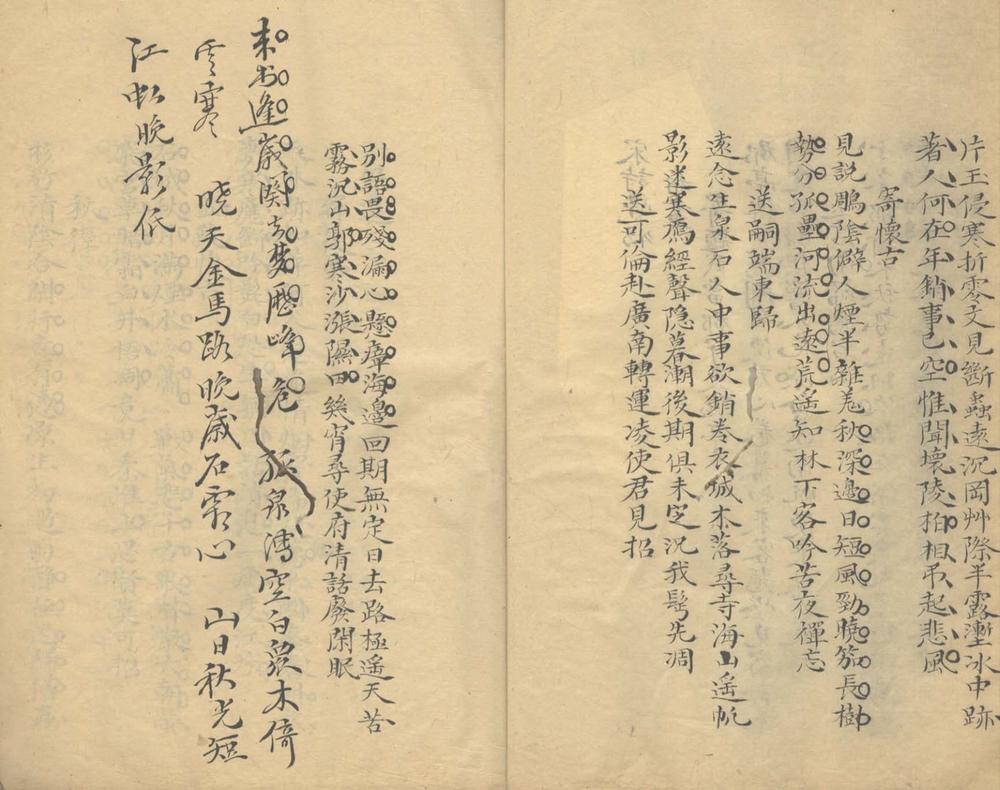 片玉侵寒折零文見斷蟲遠沉岡艸際半露壍冰中跡
著人何在年銷事已空惟聞壞陵柏相吊起悲風
寄懷古
見說鵰陰僻人煙半雜羌秋深邊日短風勁曉笳長樹
勢分孤壘河流出遠荒遥知林下客吟苦夜禪忘
送嗣端東歸
遠念生泉石人中事欲銷卷衣城木落尋寺海山遥帆
影迷寒鴈經聲隐暮潮後期俱未定况我髩先凋
送可倫赴廣南轉運凌使君見招
別語畏殘漏心懸瘴海邊回期無定日去路極遥天苦
霧沉山郭寒沙漲隰田幾宵尋使府清話廢閑眠
来書逢歲闋 夢歷峰危 孤泉溥空白衆木倚
雲寒 曉天金馬路晚歲石霜心 山日秋光短
江虹晚影低